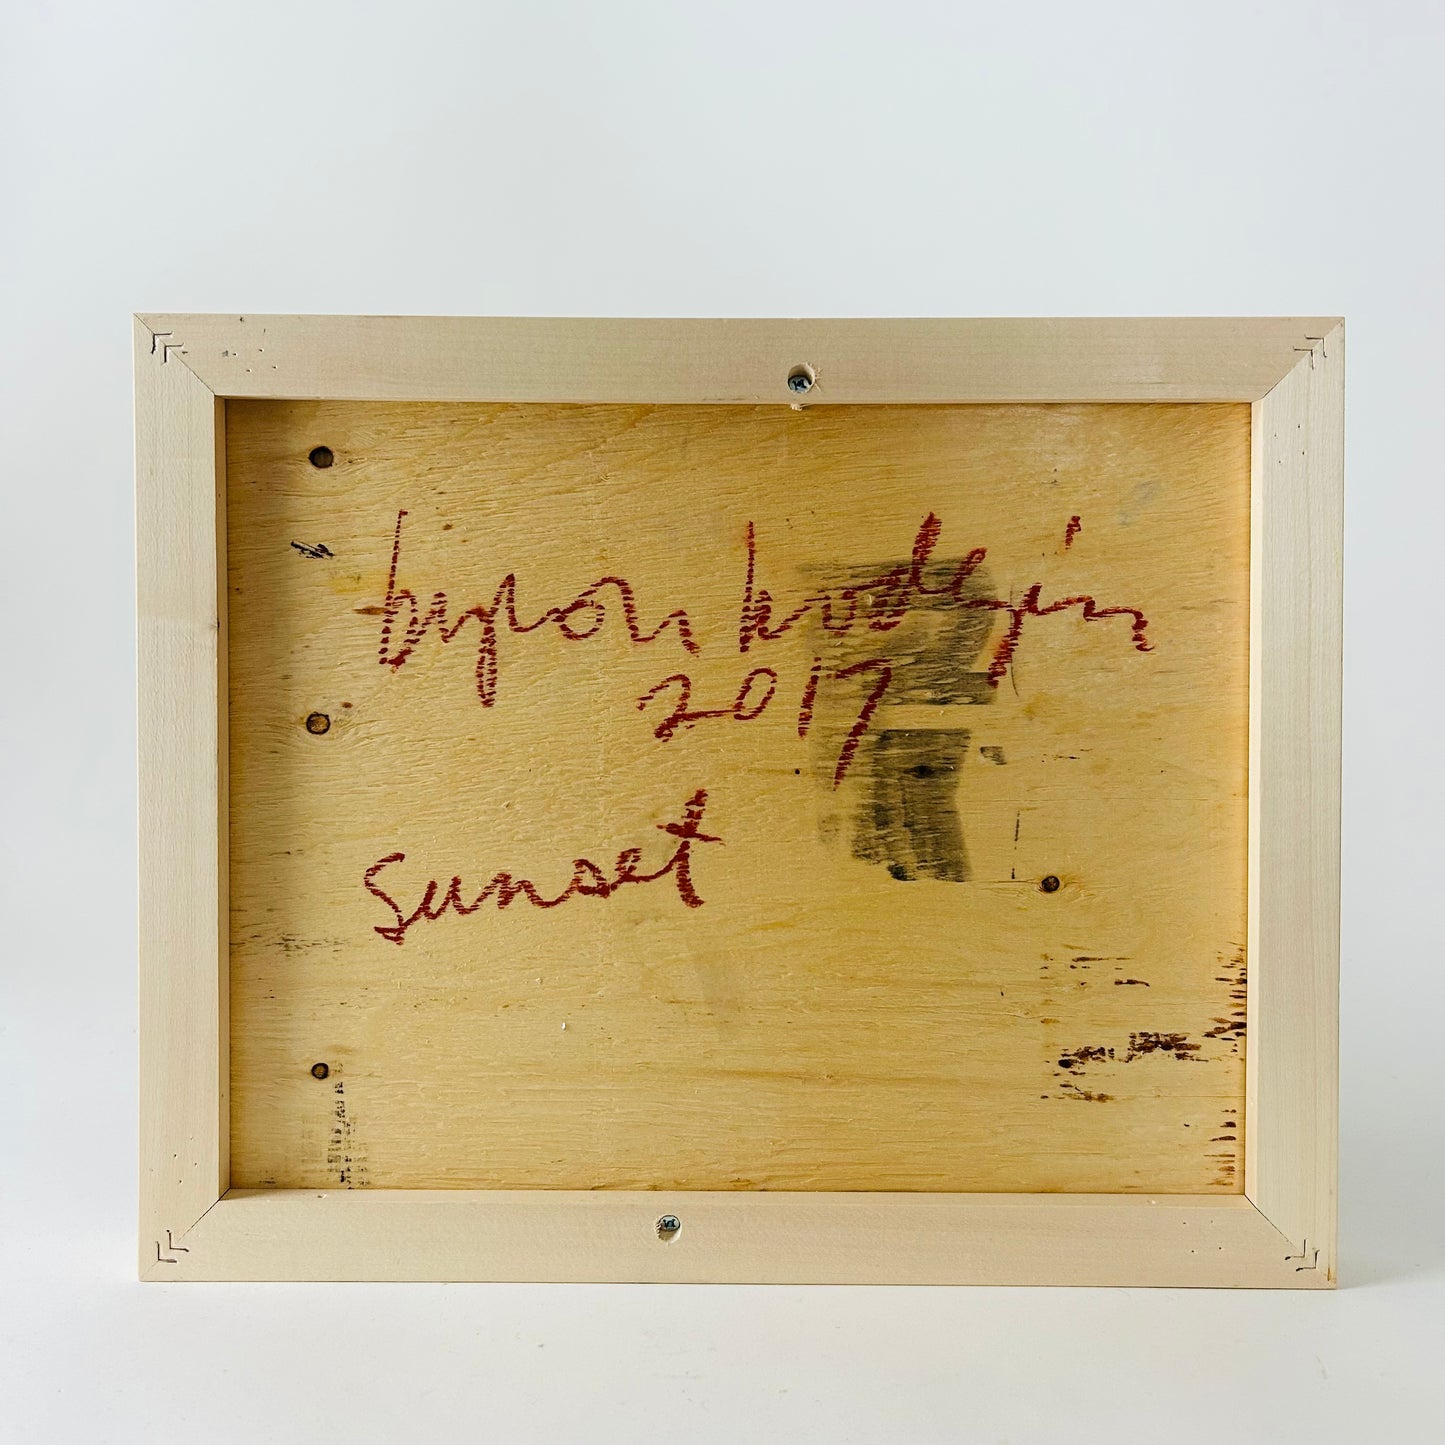 byron hodgin
2017
sunset